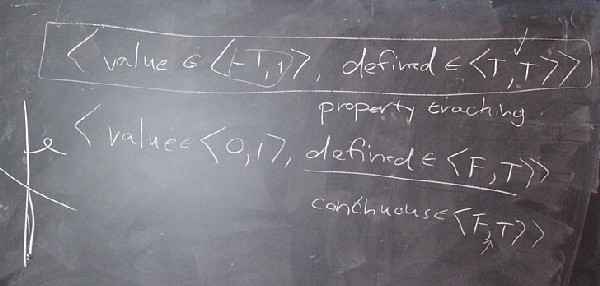 <value ∈ <-1,1>, defined ∈ <T,T>>
property tracking
<value ∈ <0,1>, defined ∈ <F,T>>
continuous ∈ <F,T>>